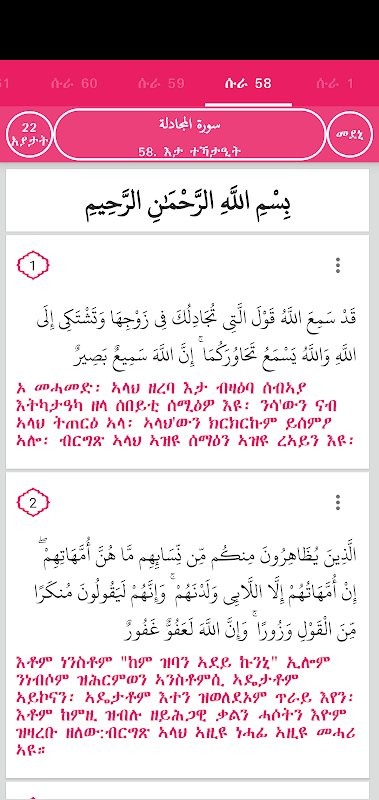 61 ሱራ 60 ሱራ 59 ሱራ 58 ሱራ 1
22
አያታት
سورة المجادلة
58. እታ ተኻታዒት
መደኒ
بِسْمِ اللَّهِ الرَّحْمَٰنِ الرَّحِيمِ
1
قَدْ سَمِعَ اللَّهُ قَوْلَ الَّتِي تُجَادِلُكَ فِي زَوْجِهَا وَتَشْتَكِي إِلَى
اللَّهِ وَاللَّهُ يَسْمَعُ تَحَاوُرَكُمَا ۚ إِنَّ اللَّهَ سَمِيعٌ بَصِيرٌ
ኦ መሓመድ፡ ኣላህ ዘረባ እታ ብዛዕባ ሰብኣያ
እትካታዓካ ዘላ ሰበይቲ ሰሚዕዎ እዩ፡ ንሳ'ውን ናብ
ኣላህ ትጠርዕ ኣላ፡ ኣላህ'ውን ክርክርኩም ይሰምዖ
ኣሎ፡ ብርግጽ ኣላህ ኣዝዩ ሰማዕን ኣዝዩ ረኣይን እዩ፡
2
الَّذِينَ يُظَاهِرُونَ مِنكُم مِّن نِّسَائِهِم مَّا هُنَّ أُمَّهَاتِهِمْ ۖ
إِنْ أُمَّهَاتُهُمْ إِلَّا اللَّائِي وَلَدْنَهُمْ ۚ وَإِنَّهُمْ لَيَقُولُونَ مُنكَرًا
مِّنَ الْقَوْلِ وَزُورًا ۚ وَإِنَّ اللَّهَ لَعَفُوٌّ غَفُورٌ
እቶም ነንስቶም "ከም ዝባን ኣደይ ኩንኒ" ኢሎም
ንነብሶም ዝሕርምወን ኣንስቶምሲ ኣዴታቶም
ኣይኮናን፡ ኣዴታቶም እተን ዝወለደኦም ጥራይ እየን፡
እቶም ከምዚ ዝብሉ ዘይሕጋዊ ቃልን ሓሶትን እዮም
ዝዛረቡ ዘለው:ብርግጽ ኣላህ ኣዚዩ ነሓፊ ኣዚዩ መሓሪ
ኣዩ።